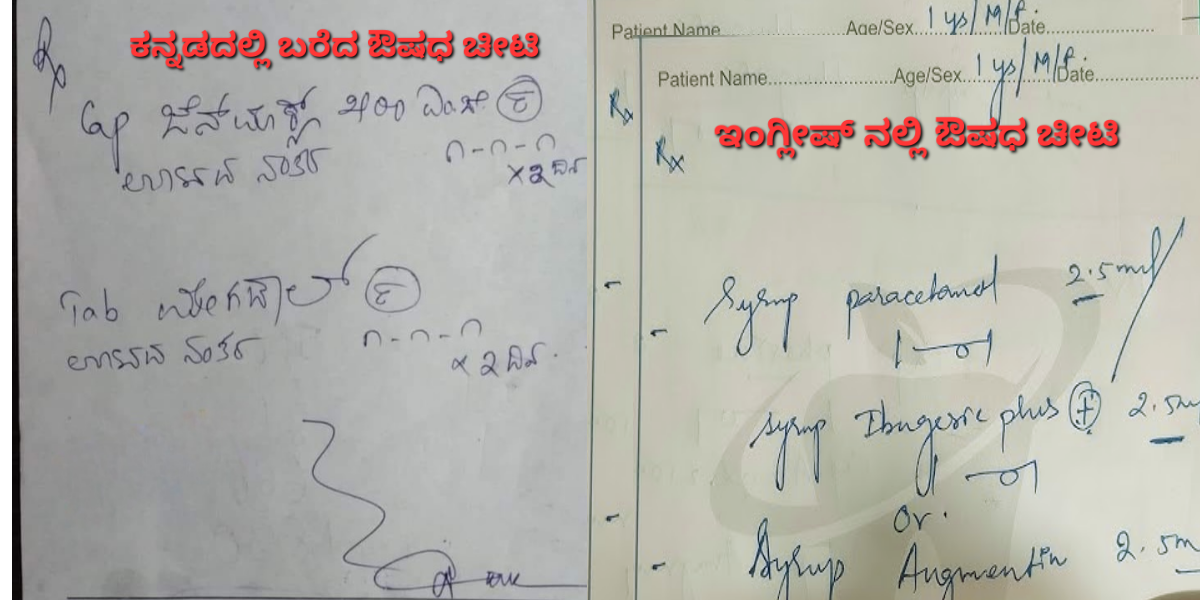 ಕನ್ನಡದಲ್ಲಿ ಬರೆದ ಔಷಧ ಚೀಟಿ
Rx
Cap
ಊಟದ ನಂತರ
೧-೧-೧
Tab
ಊಟದ ನಂತರ
೧-೧-೧
Patient Name Age/Sex 1 ys/M/f. Date
Patient Name Age/Sex 1 ys/M/f. Date
Rx
ಇಂಗ್ಲೀಷ್ ನಲ್ಲಿ ಔಷಧ ಚೀಟಿ
Rx
Syrup paracetamol 2.5ml
syrup Ibugesic plus 2.5m
Or.
Syrup Augmentin 2.5m